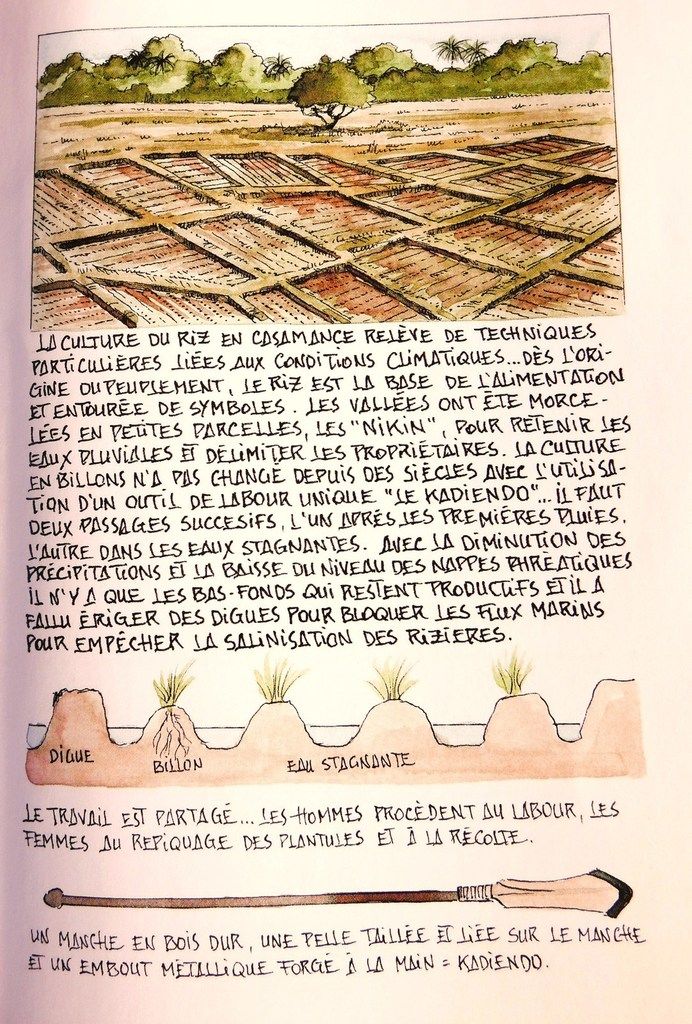 LA CULTURE DU RIZ EN CASAMANCE RELÈVE DE TECHNIQUES
PARTICULIÈRES LIÉES AUX CONDITIONS CLIMATIQUES... DÈS L'ORI-
GINE DU PEUPLEMENT, LE RIZ EST LA BASE DE L'ALIMENTATION
ET ENTOURÉE DE SYMBOLES. LES VALLÉES ONT ÉTÉ MORCE-
LÉES EN PETITES PARCELLES, LES "NIKIN", POUR RETENIR LES
EAUX PLUVIALES ET DÉLIMITER LES PROPRIÉTAIRES. LA CULTURE
EN BILLONS N'A PAS CHANGÉ DEPUIS DES SIÈCLES AVEC L'UTILISA-
TION D'UN OUTIL DE LABOUR UNIQUE "LE KADIENDO"... IL FAUT
DEUX PASSAGES SUCCESIFS, L'UN APRÉS LES PREMIÉRES PLUIES,
L'AUTRE DANS LES EAUX STAGNANTES. AVEC LA DIMINUTION DES
PRÉCIPITATIONS ET LA BAISSE DU NIVEAU DES NAPPES PHRÉATIQUES
IL N'Y A QUE LES BAS-FONDS QUI RESTENT PRODUCTIFS ET IL A
FALLU ÉRIGER DES DIGUES POUR BLOQUER LES FLUX MARINS
POUR EMPÊCHER LA SALINISATION DES RIZIERES.
DIGUE BILLON EAU STAGNANTE
LE TRAVAIL EST PARTAGÉ... LES HOMMES PROCÈDENT AU LABOUR, LES
FEMMES AU REPIQUAGE DES PLANTULES ET À LA RÉCOLTE.
UN MANCHE EN BOIS DUR, UNE PELLE TAILLÉE ET LIÉE SUR LE MANCHE
ET UN EMBOUT MÉTALLIQUE FORGÉ À LA MAIN = KADIENDO.